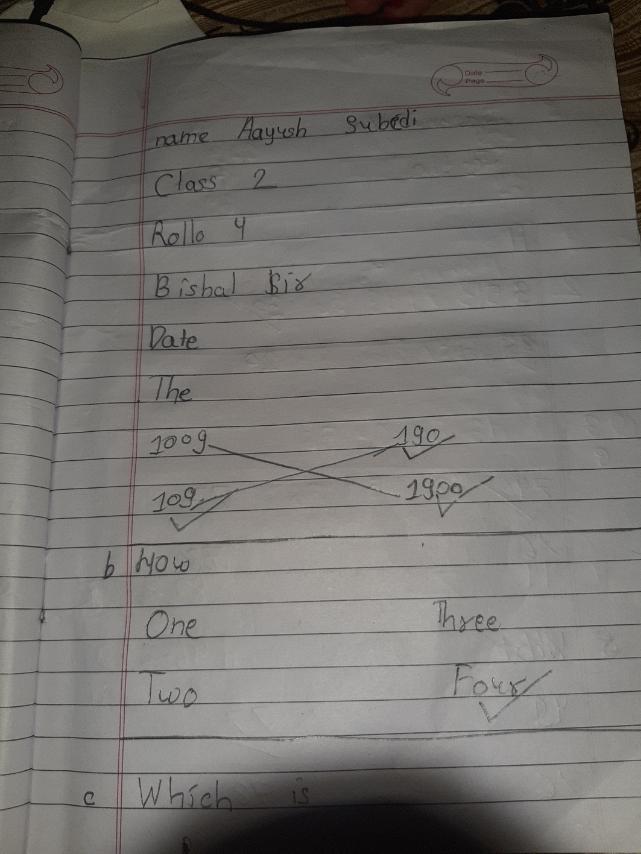 Date
Page
name Aayush Subedi
Class 2
Rollo 4
Bishal Sir
Date
The
1009 190
109 1900
b How
One Three
Two Four
c Which is